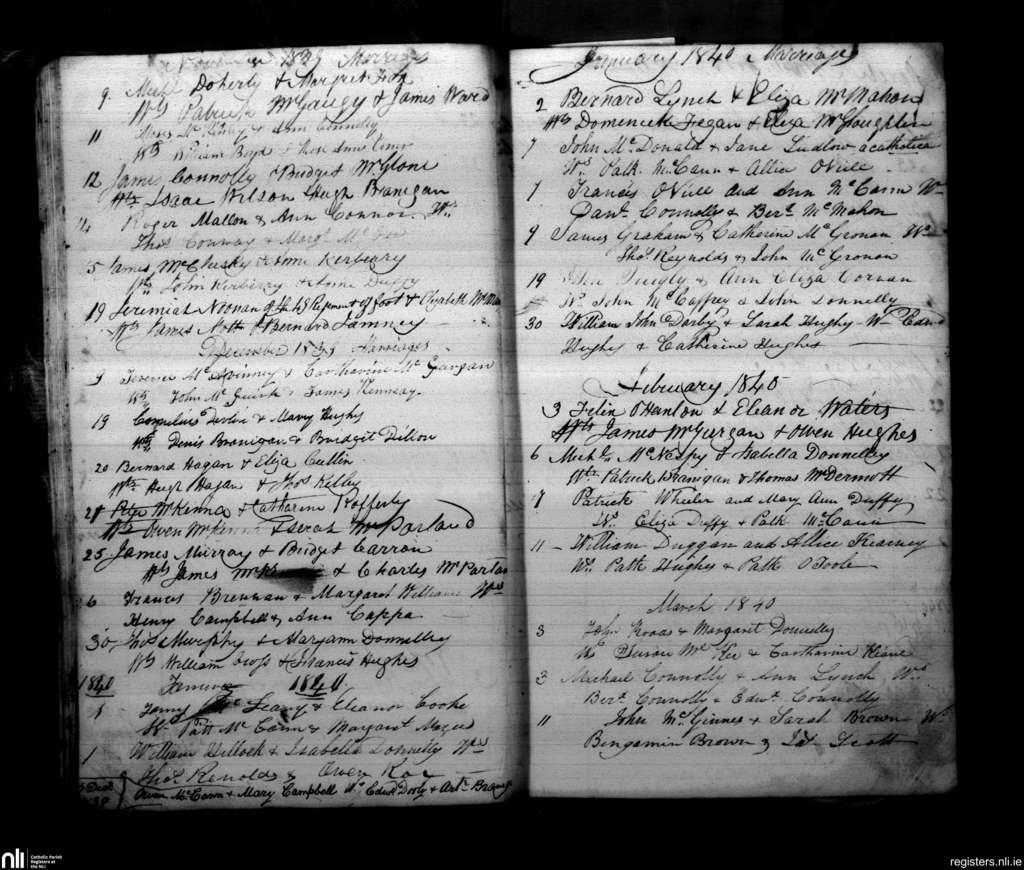 1839 Marriages
9. Mich Doherty & Margret Fox
Wts Patrick McGaugy & James Ward
11 & Ann Connolly
Wts William Boyd & Ann
12 James Connolly & Bridget McGlone
Wts Isaac Wilson Hugh Branigan
14 Roger Mallon & Ann Connor. Ws
Thos Conway & Margt
15 James McClusky & Anne Kerbery
Wts John Kerberry & Anne Duffy
19 Jeremiah Noonan of the Regiment of foot & Elizabeth
Wts James & Bernard
December 1839 Marriages
9 & Catharine Mc Gurgan
Wts John McGuirk & James Kennedy.
19 Cornelius Devlin & Mary Hughs
Wts Denis Branigan & Bridget Dillon
20 Bernard Hagan & Eliza Cullin
Wts Hugh Hagan & Thos Kelley
21 Peter McKenna & Catharine Rafferty
Wts Owen McKenna & Sarah McParland
25 James Murray & Bridget Carron
Wts James & Charles McParlan
26 Francis Brennan & Margaret William Wts
Henry Campbell & Ann Cappa
30 Thos Murphy & Maryann Donnelley
Wts William Cross & Francis Hughes
1840 1840
1 & Eleanor Cooke
Ws Patt McCann & Margaret
1 William & Isabella Donnelly Wts
Thos Renolds & Owen Roe
Owen McCann & Mary Campbell Ws Edwd Dooly & Arthr
January 1840 Marriages
2 Bernard Lynch & Eliza McMahon
Wts Domenick Fegan & Eliza McGloughlin
7 John McDonald & Jane Ludlow acatholica
Ws Patk McCann & Allice ONeill
7 Francis ONeill and Ann McCann Ws
Danl Connolly & Berd McMahon
9 James Graham & Catherine McGronan Ws
Thos Reynolds & John McGronan
19 & Ann Eliza Corvan
Ws John McCaffrey & John Donnelly
30 William John Darby & Sarah Hughs Ws
Hughs & Catherine Hughes
February 1840
3 Felix OHanlon & Eleanor Waters
Wts James McGurgan & Owen Hughes
6 Michl McNespy & Isabella Donnelley
Wts Patrick Branigan & Thomas McDermott
7 Patrick Wheeler and Mary Ann Duffy
Ws Eliza Duffy & Patk McCann
11 William Duggan and Allice Kearney
Ws Patk Hughs & Patk OToole
March 1840
3 John & Margaret Donnelly
Ws Susan & Catharine Keane
3 Michael Connolly & Ann Lynch Ws
Berd Connolly & Edwd Connolly
11 John McGinnes & Sarah Brown Ws
Bengamin Brown & Scott
nli
Catholic Parish
Registers at
the NLI
registers.nli.ie